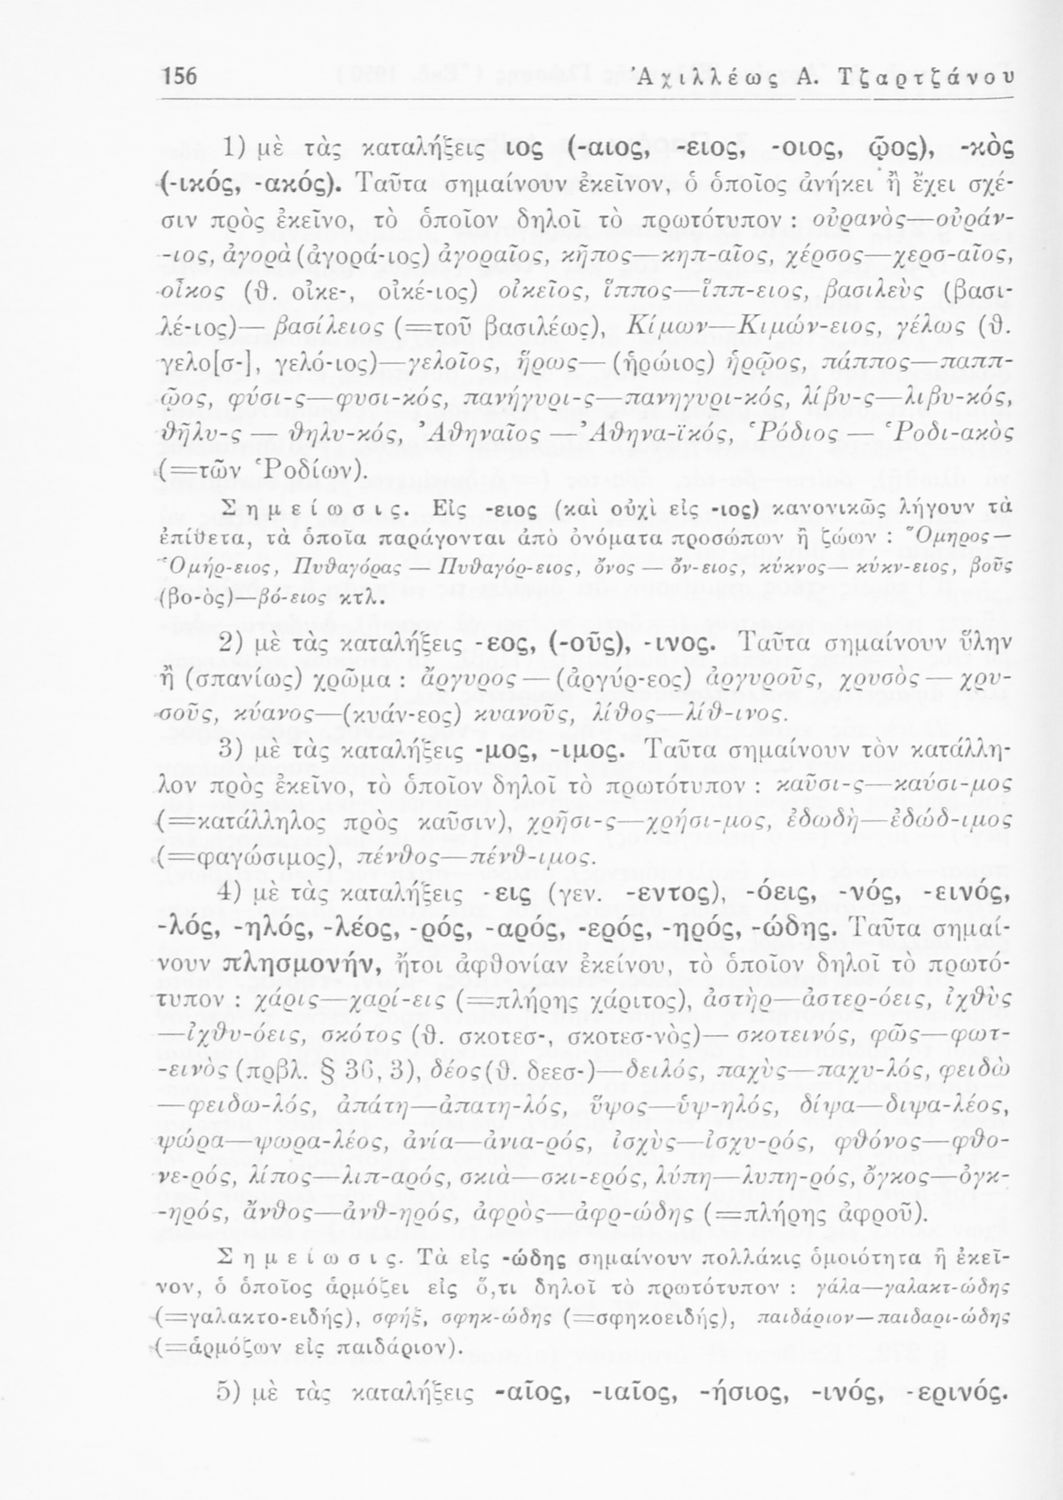 156 Ἀχιλλέως Α. Τζαρτζάνου
1) μὲ τὰς καταλήξεις ιος (-αιος, -ειος, -οιος, ῷος), -κὸς
(-ικός, -ακός). Ταῦτα σημαίνουν ἐκεῖνον, ὁ ὁποῖος ἀνήκει ἢ ἔχει σχέ-
σιν πρὸς ἐκεῖνο, τὸ ὁποῖον δηλοῖ τὸ πρωτότυπον : οὐρανὸς—οὐράν-
-ιος, ἀγορὰ (ἀγορά-ιος) ἀγοραῖος, κῆπος—κηπ-αῖος, χέρσος—χερσ-αῖος,
οἶκος (θ. οἰκε-, οἰκέ-ιος) οἰκεῖος, ἵππος—ἵππ-ειος, βασιλεὺς (βασι-
λέ-ιος)— βασίλειος (=τοῦ βασιλέως), Κίμων—Κιμών-ειος, γέλως (θ.
γελο[σ-], γελό-ιος)—γελοῖος, ἥρως— (ἡρώιος) ἡρῷος, πάππος—παππ-
ῷος, φύσι-ς—φυσι-κός, πανήγυρι-ς—πανηγυρι-κός, λίβυ-ς—λιβυ-κός,
θῆλυ-ς — θηλυ-κός, Ἀθηναῖος —Ἀθηνα-ϊκός, Ῥόδιος — Ῥοδι-ακὸς
(=τῶν Ῥοδίων).
Σημείωσις. Εἰς -ειος (καὶ οὐχὶ εἰς -ιος) κανονικῶς λήγουν τὰ
ἐπίθετα, τὰ ὁποῖα παράγονται ἀπὸ ὀνόματα προσώπων ἢ ζώων : Ὅμηρος—
Ὁμήρ-ειος, Πυθαγόρας — Πυθαγόρ-ειος, ὄνος — ὄν-ειος, κύκνος— κύκν-ειος, βοῦς
(βο-ὸς)—βό-ειος κτλ.
2) μὲ τὰς καταλήξεις -εος, (-οῦς), -ινος. Ταῦτα σημαίνουν ὕλην
ἢ (σπανίως) χρῶμα : ἄργυρος — (ἀργύρ-εος) ἀργυροῦς, χρυσὸς — χρυ-
σοῦς, κύανος—(κυάν-εος) κυανοῦς, λίθος—λίθ-ινος.
3) μὲ τὰς καταλήξεις -μος, -ιμος. Ταῦτα σημαίνουν τὸν κατάλλη-
λον πρὸς ἐκεῖνο, τὸ ὁποῖον δηλοῖ τὸ πρωτότυπον : καῦσι-ς—καύσι-μος
(=κατάλληλος πρὸς καῦσιν), χρῆσι-ς—χρήσι-μος, ἐδωδὴ—ἐδώδ-ιμος
(=φαγώσιμος), πένθος—πένθ-ιμος.
4) μὲ τὰς καταλήξεις -εις (γεν. -εντος), -όεις, -νός, -εινός,
-λός, -ηλός, -λέος, -ρός, -αρός, -ερός, -ηρός, -ώδης. Ταῦτα σημαί-
νουν πλησμονήν, ἤτοι ἀφθονίαν ἐκείνου, τὸ ὁποῖον δηλοῖ τὸ πρωτό-
τυπον : χάρις—χαρί-εις (=πλήρης χάριτος), ἀστὴρ—ἀστερ-όεις, ἰχθὺς
—ἰχθυ-όεις, σκότος (θ. σκοτεσ-, σκοτεσ-νὸς)— σκοτεινός, φῶς—φωτ-
-εινὸς (πρβλ. § 36, 3), δέος (θ. δεεσ-)—δειλός, παχὺς—παχυ-λός, φειδὼ
—φειδω-λός, ἀπάτη—ἀπατη-λός, ὕψος—ὑψ-ηλός, δίψα—διψα-λέος,
ψώρα—ψωρα-λέος, ἀνία—ἀνια-ρός, ἰσχὺς—ἰσχυ-ρός, φθόνος—φθο-
νε-ρός, λίπος—λιπ-αρός, σκιὰ—σκι-ερός, λύπη—λυπη-ρός, ὄγκος—ὀγκ-
-ηρός, ἄνθος—ἀνθ-ηρός, ἀφρὸς—ἀφρ-ώδης (=πλήρης ἀφροῦ).
Σημείωσις. Τὰ εἰς -ώδης σημαίνουν πολλάκις ὁμοιότητα ἢ ἐκεῖ-
νον, ὁ ὁποῖος ἁρμόζει εἰς ὅ,τι δηλοῖ τὸ πρωτότυπον : γάλα—γαλακτ-ώδης
(=γαλακτο-ειδής), σφήξ, σφηκ-ώδης (=σφηκοειδής), παιδάριον—παιδαρι-ώδης
(=ἁρμόζων εἰς παιδάριον).
5) μὲ τὰς καταλήξεις -αῖος, -ιαῖος, -ήσιος, -ινός, -ερινός.